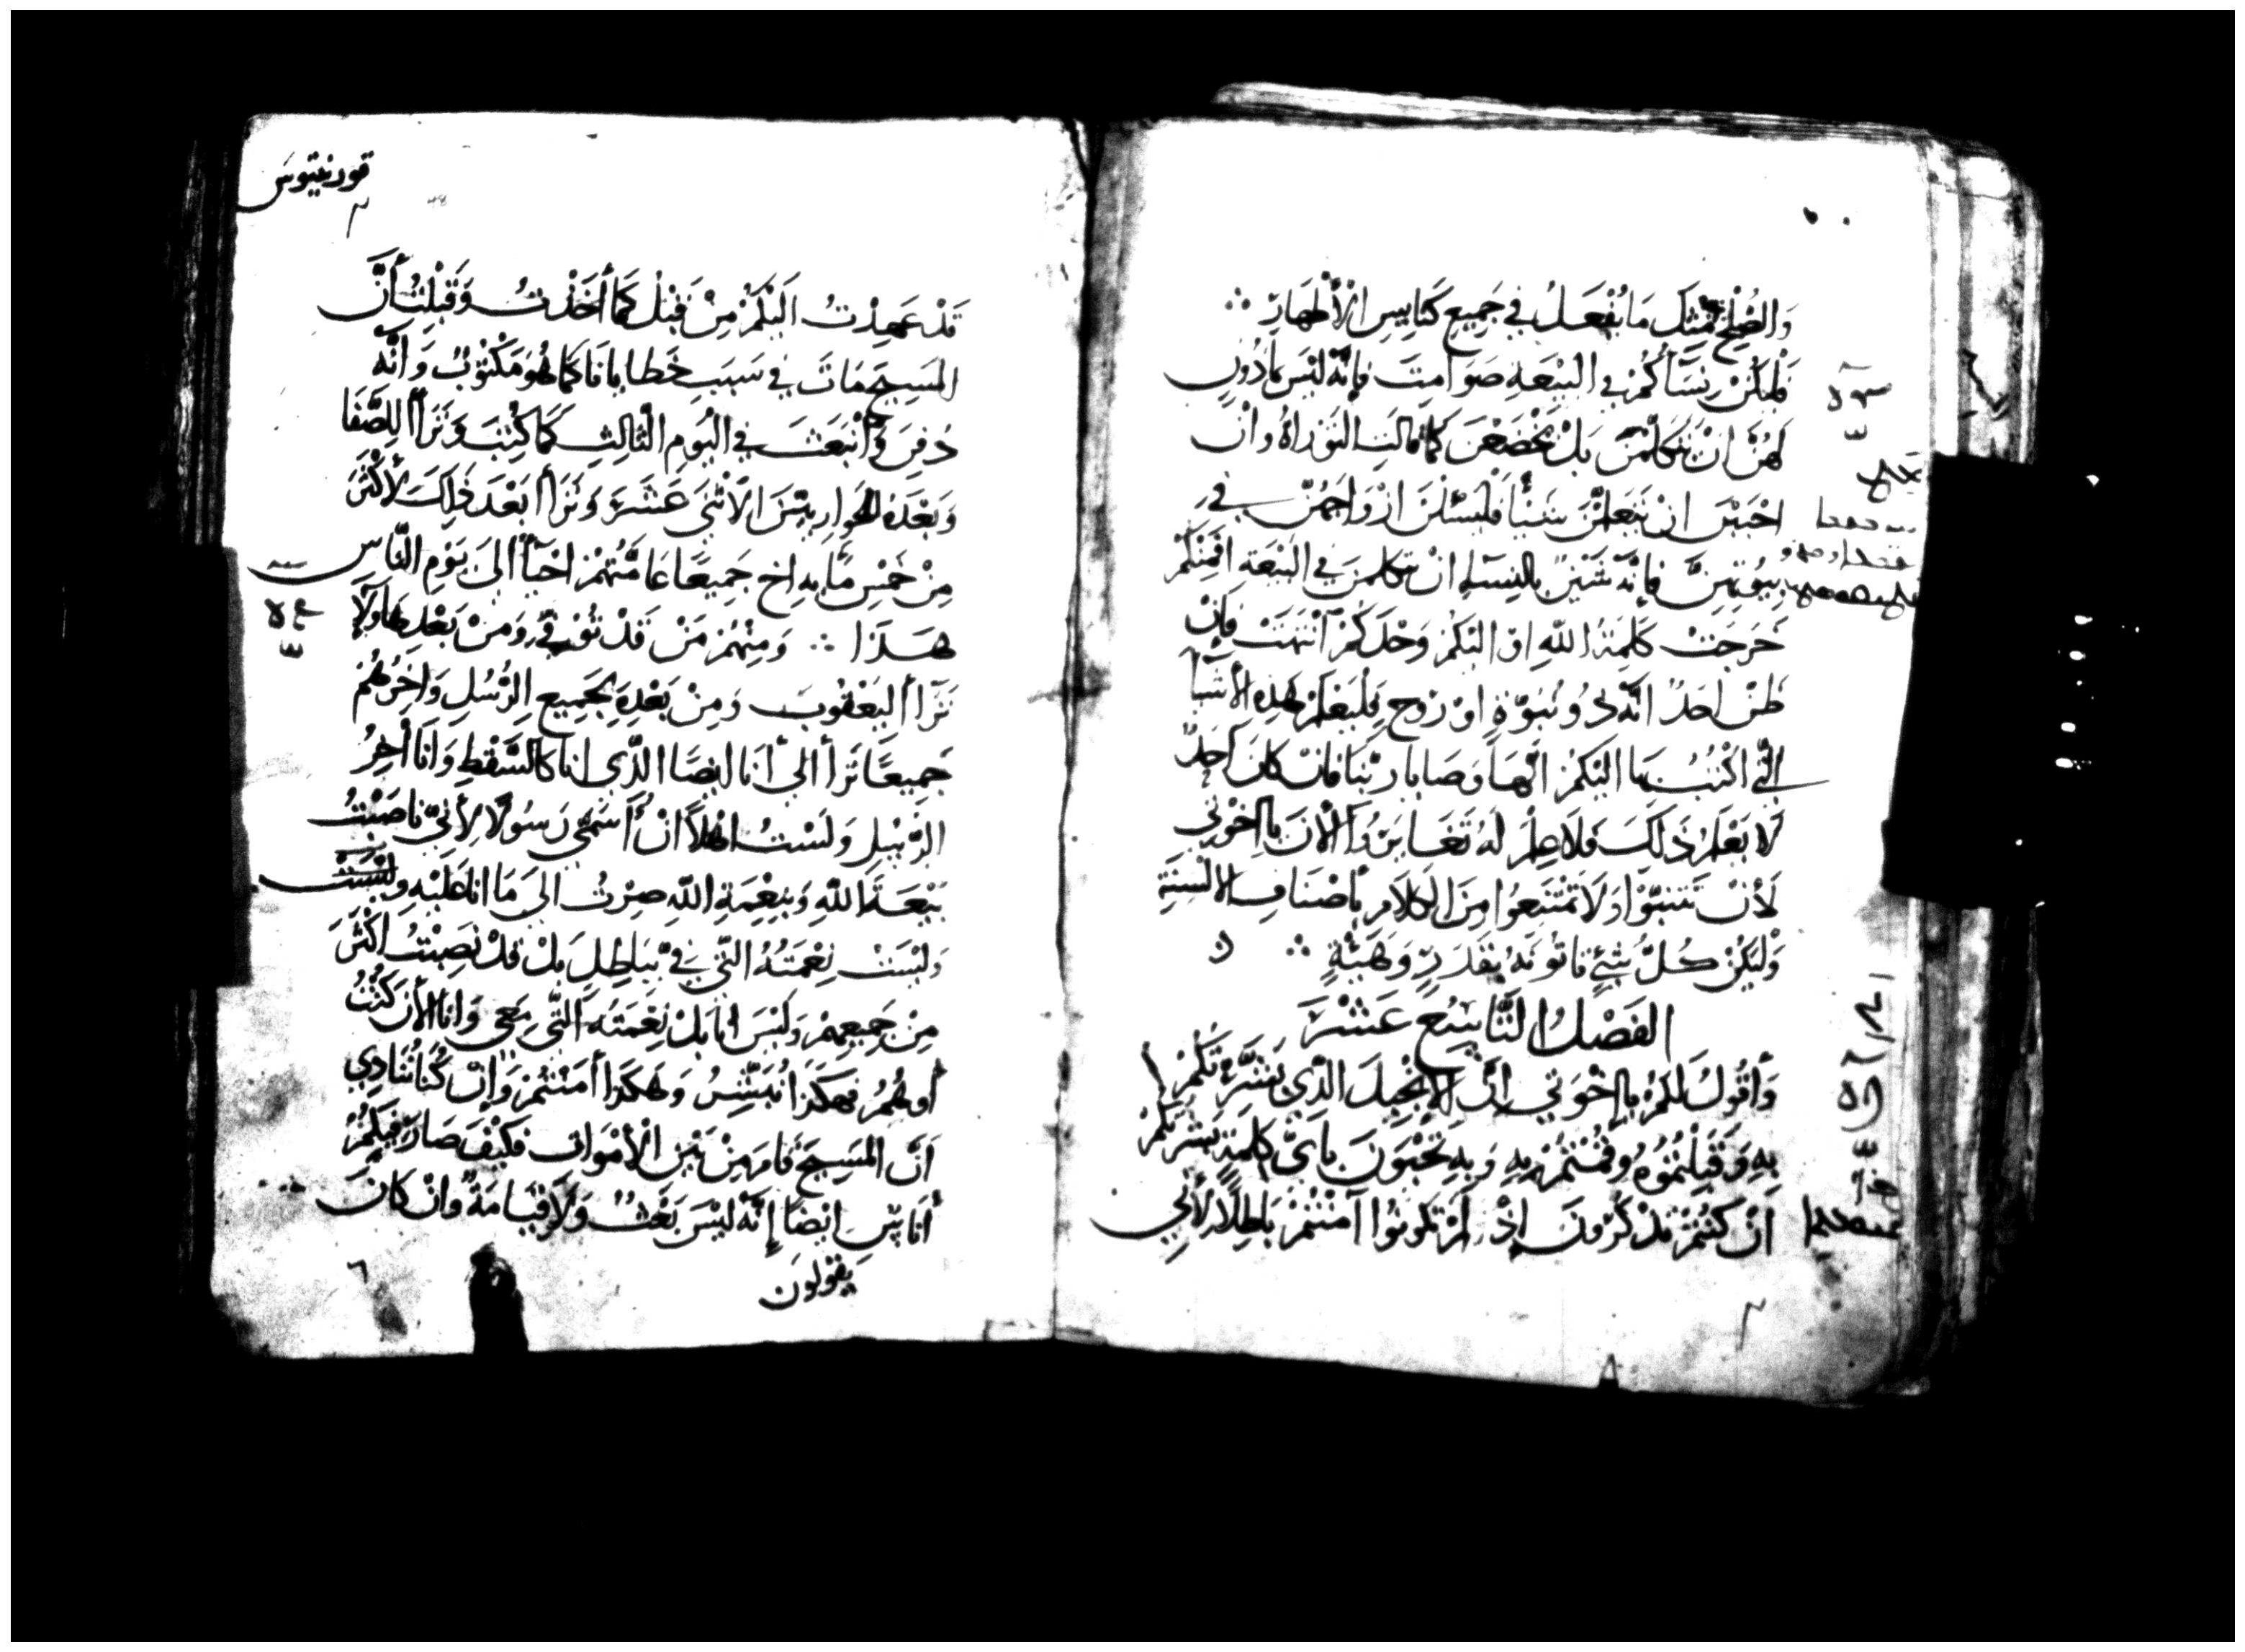 وَالصُّلْحِ مِثْلَ مَا يُفْعَلُ فِي جَمِيعِ كَنَايِسِ الْأَطْهَارِ ∴
فَلْيَكُنْ نِسَاَّكُمْ فِي البِيْعَةِ صَوَامِتَ فَإِنَّهُ لَيْسَ مَأذُونٍ
لَهُنَّ انْ يَتَكَلَّمْنَ بَلْ يَخْضَعْنَ كَمَا قَالَتِ التَّوْرَاةُ وانْ
احْبَبْنَ انْ يَتَعَلَّمْنَ شَيْئًا فَلْيَسْئَلْنَ ازْوَاجَهُنَّ فِي
بِيُوتِهِنَّ فَإِنَّهُ شَيْنٌ بِالنِسَآءِ انْ يتكلمنَ فِي البَيْعَةِ افَمِنْكُمْ
خَرَجَتْ كَلِمَةُ اللّهِ اوْ الَيْكُمْ وَحْدَكُمْ انْتَهَتْ فَإِنْ
ظَنَّ احَدٌ انَّهُ ذُو نُبُوَّةٍ اوْ رُوحٍ فَلْيَعْلَمْ هَذِهِ الأَشْيَآ
الَّتِي اكْتُبُ بِهَا الَيْكُمْ انَّهَا وَصَايَا رَبّنَا فَانْ كَانَ أَحَدٌ
لَا يَعْلَمُ ذَلِكَ فَلَا عِلْمَ لَهُ تَغَايَرُوا الْآنَ يَا اخْوَتِي
لَأَنْ تَتَنَبَّوْا وَلَا تَمْتَنِعُوا مِنَ الكَلَامِ بِأَصْنَافِ الالْسِنَةِ
وَلْيَكُنْ كُلُّ شَيْءٍ تَاتُونَهُ بِقَدَرٍ وَهَيْئَةٍ ∴
الفَصْلُ التَّاسِعُ عَشْرَ
وَأَقُولُ لَكُمْ يَا إِخْوَتِي انَّ الْإنْجِيلَ الَّذِي بَشَّرْتَكُمْ
بِهِ وَقَبِلْتُمُوهُ وَقُمْتُمْ بِهِ وَبِهِ تَحْيَوْنَ بِايِّ كَلِمَةٍ بَشَّرْتكُمْ
اَنْ كُنْتُمْ تَذْكُرُونَ إِذْ لَمْ تَكُونُوا آمَنْتُمْ بَاطِلًا لِأَنِّي
قورنثيوس
قَدْ عَهِدْتُ الَيْكُمْ مِنْ قَبْلُ كَمَا أَخَذْتُ وَقَبِلْتُ أَنَّ
المَسِيحَ مَاتَ فِي سَبَبِ خَطَايَانَا كَمَا هُوَ مَكْتُوبٌ وَأَنَّهُ
دُفِنَ وَأَنْبَعَثَ فِي اليَوْمِ الثَّالِثِ كَمَا كُتِبَ وَتَرَأَا لِلصَّفَا
وَبَعْدَهُ لِلحَوَارِيِّينَ الاثْنَي عَشَرَ وَتَرَأَا بَعْدَ ذَلِكَ لِأَكْثَرَ
مِنْ خَمْسِ مَايَةِ اخٍ جَمِيعًا عَامَّتُهُمْ احْيَاَأٌ الَى يَوْمِ النَّاسِ
هَذَا ∴ وَمِنْهُمْ مَنْ قَدْ تُوُفِّيَ وَمِنْ بَعْدِ هَاوُلَآ
تَرَآأ لِيَعْقُوبَ وَمِنْ بَعْدِهِ لِجَمِيعِ الرُّسُلِ وَاخِرُهُمْ
جَمِيعًا تَرَأ الَيَّ أَنَا ايضَا الَّذِي انا كَالسَّقْطِ وَأنَا أخِرُ
الرُّسُلِ وَلَسْتُ اهْلاً انْ أُسَمَّي رَسُولًا لِأَنِّي نَاصَبْتُ
بَيْعَةَ اللّهِ وَبِنِعْمَةِ اللّهِ صِرْتُ الَي مَا انا عَلَيْهِ
وَلَيْسَتْ نِعْمَتُهُ الَّتِي فِيَّ بِبَاطِلٍ بَلْ قَدْ نَصِبْتُ اكْثَرَ
مِنْ جَمِيعِهِمْ وَلَيْسَ انا بَلْ نِعْمَتُهُ الَّتِي مَعِي وَانا الأَن كُنْتُ
أَو هُمْ فهَكَذَا نُبَشِّرُ وَهَكَذَا أَمَنْتُمْ وَإِنْ كُنَّا نُنَادِي
أَنَّ المَسِيحَ قَامَ مِنْ بَيْنِ الْأَمْوَاتِ فَكَيْفَ صَارَ فِيكُمْ
أُنَاسٌ ايْضًا إِنَّهُ لَيْسَ بَعْثٌ وَلَا قِيَامَةٌ وانْ كَانَ
يقولون